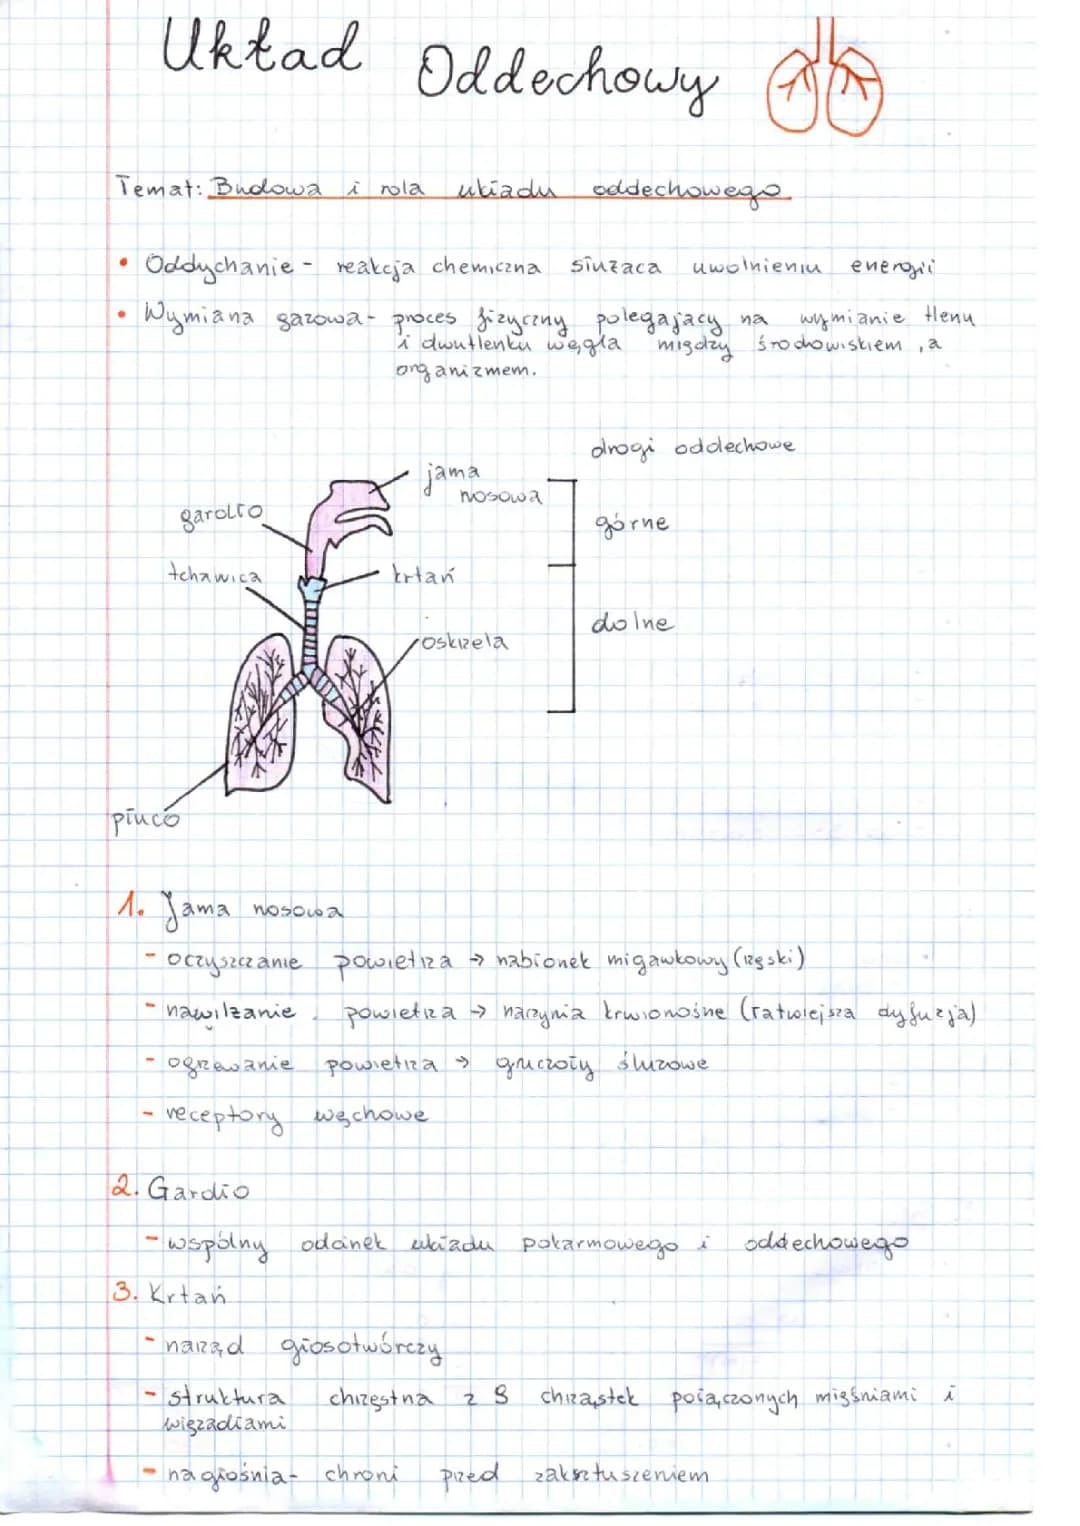 Układ Oddechowy
Temat: Budowa i rola układu oddechowego
• Oddychanie - reakcja chemiczna służąca uwolnieniu energii
• Wymiana gazowa - proces fizyczny polegający na wymianie tlenu
i dwutlenku węgla między środowiskiem, a
organizmem.
drogi oddechowe
jama
nosowa
gardło
górne
tchawica
krtań
dolne
oskrzela
płuco
1. Jama nosowa
- oczyszczanie powietrza → nabłonek migawkowy (rzęski)
- nawilżanie powietrza → naczynia krwionośne (łatwiejsza dyfuzja)
- ogrzewanie powietrza → gruczoły śluzowe
- receptory węchowe
2. Gardło
- wspólny odcinek układu pokarmowego i oddechowego
3. Krtań
- narząd głosotwórczy
- struktura chrzęstna z 9 chrząstek połączonych mięśniami i
więzadłami
- nagłośnia - chroni przed zaksztuszeniem